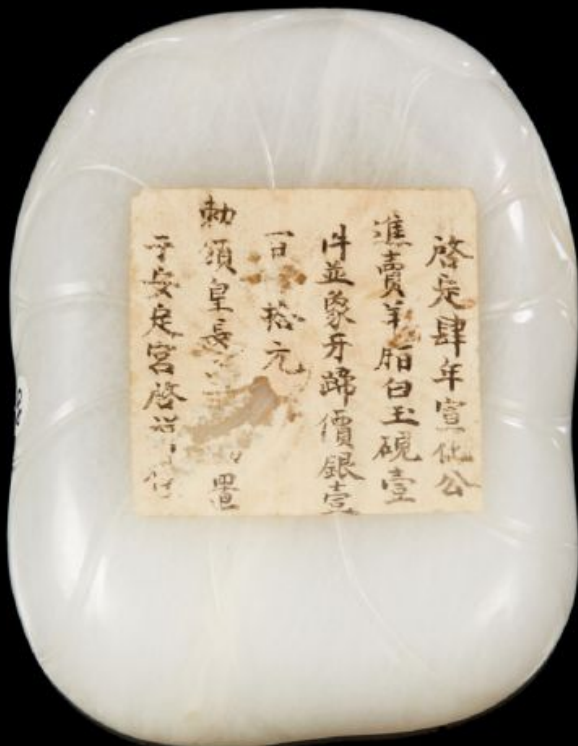 啓定肆年宣化公
進賣羊脂白玉硯壹
件並象牙蹄價銀壹
百 拾元
勅頒皇長 置
于安定宮啓